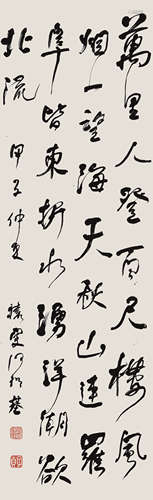 萬里人登百尺樓風
烟一望海天秋山連羅
阜皆東折水湧洋潮欲
北流
甲子仲夏
猿叟何紹基